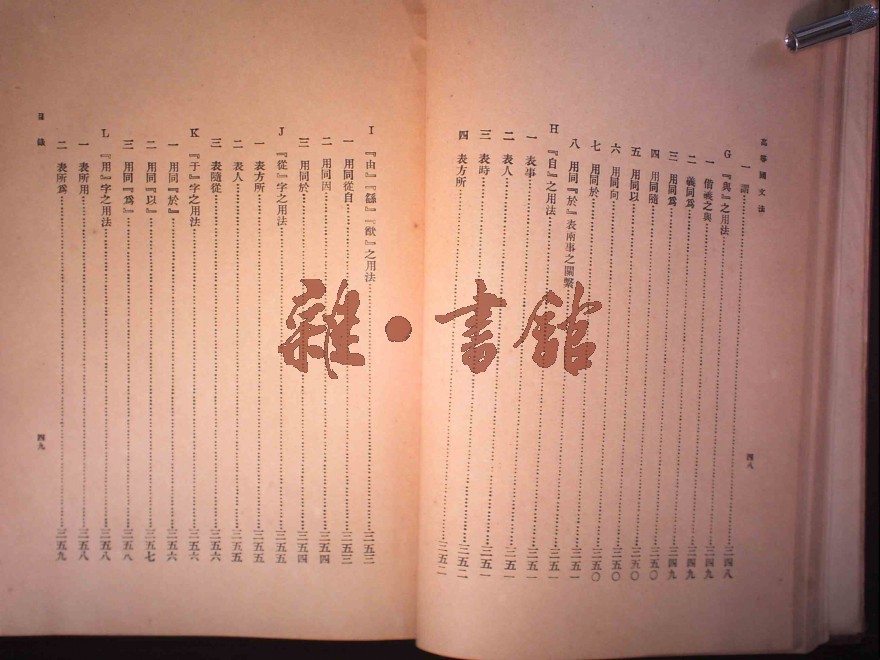 高等國文法
一 謂……三四八
G 『與』之用法……三四八
一 偕義之與……三四九
二 義同爲……三四九
三 用同爲……三四九
四 用同隨……三五〇
五 用同以……三五〇
六 用同向……三五〇
七 用同於……三五〇
八 用同『於』表兩事之關繫……三五一
H 『自』之用法……三五一
一 表事……三五一
二 表人……三五一
三 表時……三五一
四 表方所……三五二
四八
目錄
I 『由』『繇』『猷』之用法……三五三
一 用同從自……三五三
二 用同因……三五四
三 用同於……三五四
J 『從』字之用法……三五五
一 表方所……三五五
二 表人……三五五
三 表隨從……三五六
K 『于』字之用法……三五六
一 用同『於』……三五六
二 用同『以』……三五七
三 用同『爲』……三五八
L 『用』字之用法……三五八
一 表所用……三五八
二 表所爲……三五九
四九
雜·書館